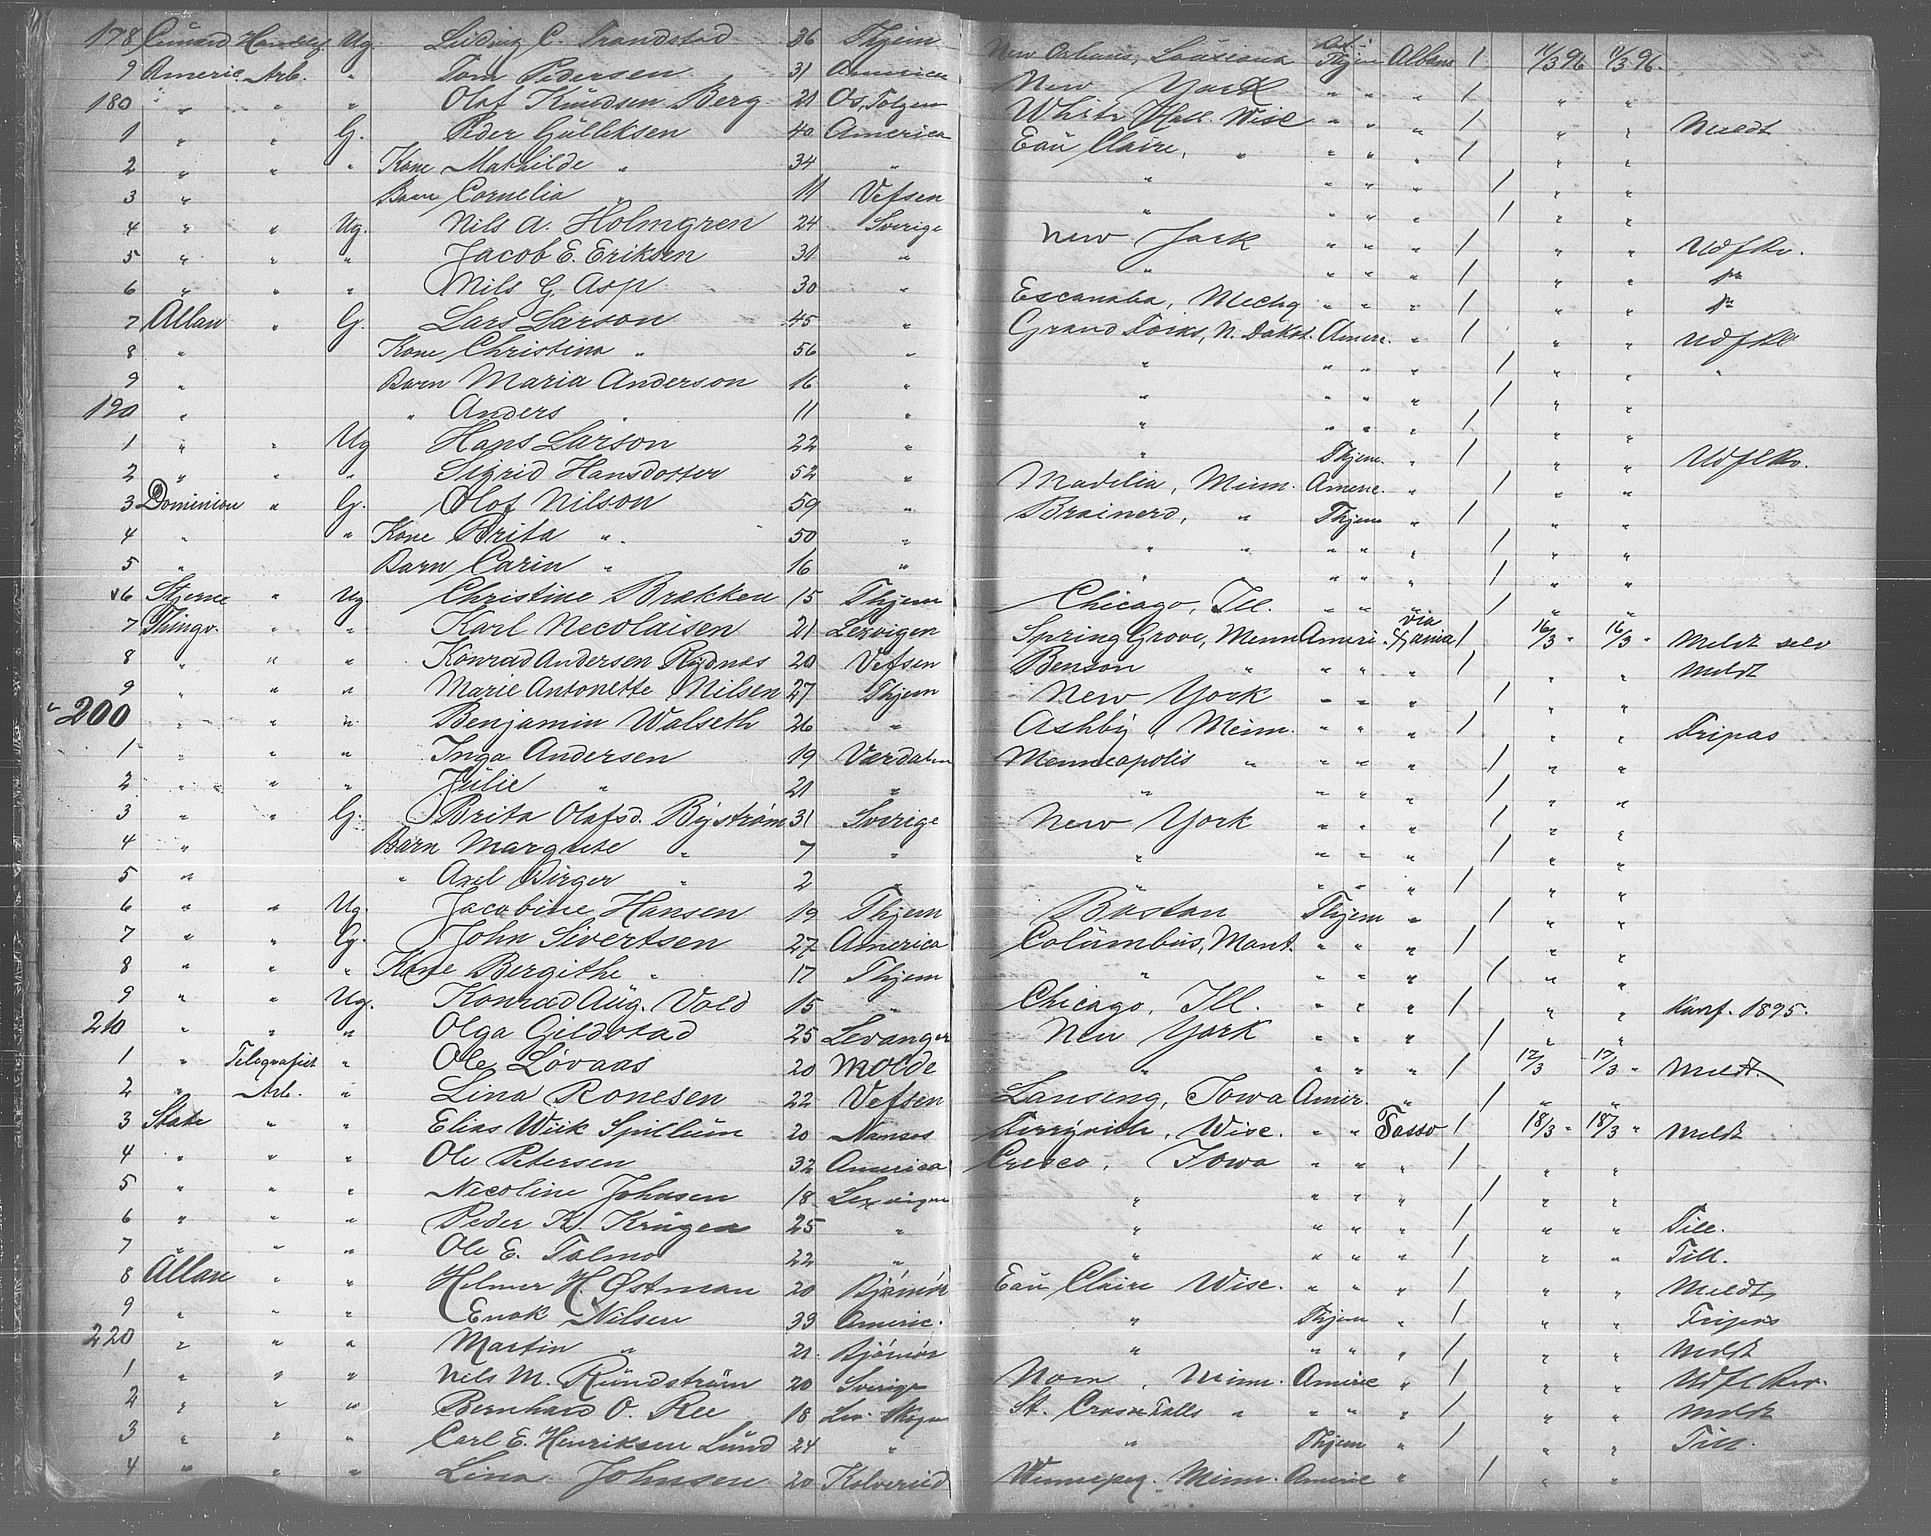 178 Cunard Handelsf. Ug. Ludvig C. Trandstad 36 Thjem New Orleans, Louiseana Thjem Albano 1 11/3 96 11/3 96.
9 Americ Arb. " Tom Pedersen 31 America New York " " " 1 " "
180 " " " Olaf Knudsen Berg 21 Os, Tolgen White Hall. Wisc " " " 1 " " Meldt
1 " " G. Peder Gulliksen 40 America Eau Claire, " " " " 1 " "
2 " " " Kone Mathilde " 34 " " " " " 1 " "
3 " Barn Cornelia " 11 Vefsen " " " " 1 " "
4 " " Ug. Nils A. Holmgren 24 Sverige New York " " " 1 " " Udflkv.
5 " " " Jacob E. Eriksen 31 " " " " " 1 " " "
6 " " " Nils G. Asp 30 " Escanaba, Mechg " " " 1 " " "
7 Allan " G. Lars Larson 45 " Grand Forks, N. Dakot. Ameri. " 1 " " Udflkv
8 " Kone Christina " 56 " " " " " 1 " " "
9 " Barn Maria Anderson 16 " " " " " 1 " "
190 " " Anders " 11 " " " " " 1 " "
1 " " Ug Hans Larson 22 " " Thjem. " 1 " " Udflkv.
2 " " " Sigrid Hansdotter 52 " Madilia, Minn. Americ. " 1 " "
3 Dominion " G. Olof Nilson 59 " Brainerd, " Thjem " 1 " "
4 " " Kone Brita " 50 " " " " " " 1 " "
5 " Barn Carin " 16 " " " " " 1 " "
6 Stjerne " Ug Christine Brakken 15 Thjem Chicago, Ill. " " " 1 " "
7 Thingv. " " Karl Necolaisen 21 Lexvigen Spring Grove, Menn Ameri. via Xania 1 16/3 " 16/3 " Meldt selv
8 " " " Konrad Andersen Rydnes 20 Vefsen Benson " " " " 1 " " Meldt
9 " " " Marie Antonette Nilsen 27 Thjem New York " " " 1 " "
200 " " " Benjamin Walseth 26 " Ashby, Minn. " " " 1 " " Fripas
1 " " " Inga Andersen 19 Værdalen Menneapolis " " " " 1 " "
2 " " " Julie " 21 " " " " " 1 " "
3 " " G. Brita Olafsd. Byström 31 Sverige New York " " " 1 " "
4 " Barn Margrete " 7 " " " " " 1 " "
5 " " Axel Birger " 2 " " " " 1 " "
6 " " Ug. Jacobine Hansen 19 Thjem Boston Thjem " 1 " "
7 " " G. John Sivertsen 27 America Columbus, Mont. " " " 1 " "
8 " " " Kone Bergithe " 17 Thjem " " " " 1 " "
9 " " Ug. Konrad Aug. Vold 15 " Chicago, Ill. " " " 1 " " Konf. 1895.
210 " " " Olga Gildstad 25 Levanger New York " " " 1 " "
1 " Telegrafist " Ole Løvaas 20 Molde " " " " 1 17/3 17/3 " Meldt.
2 " Arb. " Lina Ronesen 22 Vefsen Lanseng, Iowa Amer. " 1 " "
3 State " " Elias Wiik Spillum 20 Namsos Ferryville, Wisc. " " Tasso 1 18/3 " 18/3 " Meldt
4 " " " Ole Petersen 32 America Cresco, Iowa " " " 1 " "
5 " " " Necoline Johnsen 18 Lexvigen " " " " 1 " "
6 " " " Peder K. Krugen 25 " " " " " 1 " " Till.
7 " " " Ole E. Talmo 22 " " " " " 1 " " Till.
8 Allan " " Helmer H. Østman 20 Bjørnør Eau Claire Wisc. " " " 1 " " Meldt
9 " " " Enok Nilsen 39 Americ. " Thjem " 1 " " Fripas
220 " " " Martin " 21 Bjørnør " " " " 1 " " Meldt
1 " " " Nils M. Rundström 20 Sverige Nora, Minn. Americ " 1 " " Udflkv.
2 " " " Bernhard O. Ree 18 St. Croix Falls " " " " 1 " " Meldt
3 " " " Carl E. Henriksen Lund 24 " " Thjem " 1 " " Till.
4 " " " Lina Johnsen 20 Kolvereid Wennepeg. Minn. Americ " 1 " "